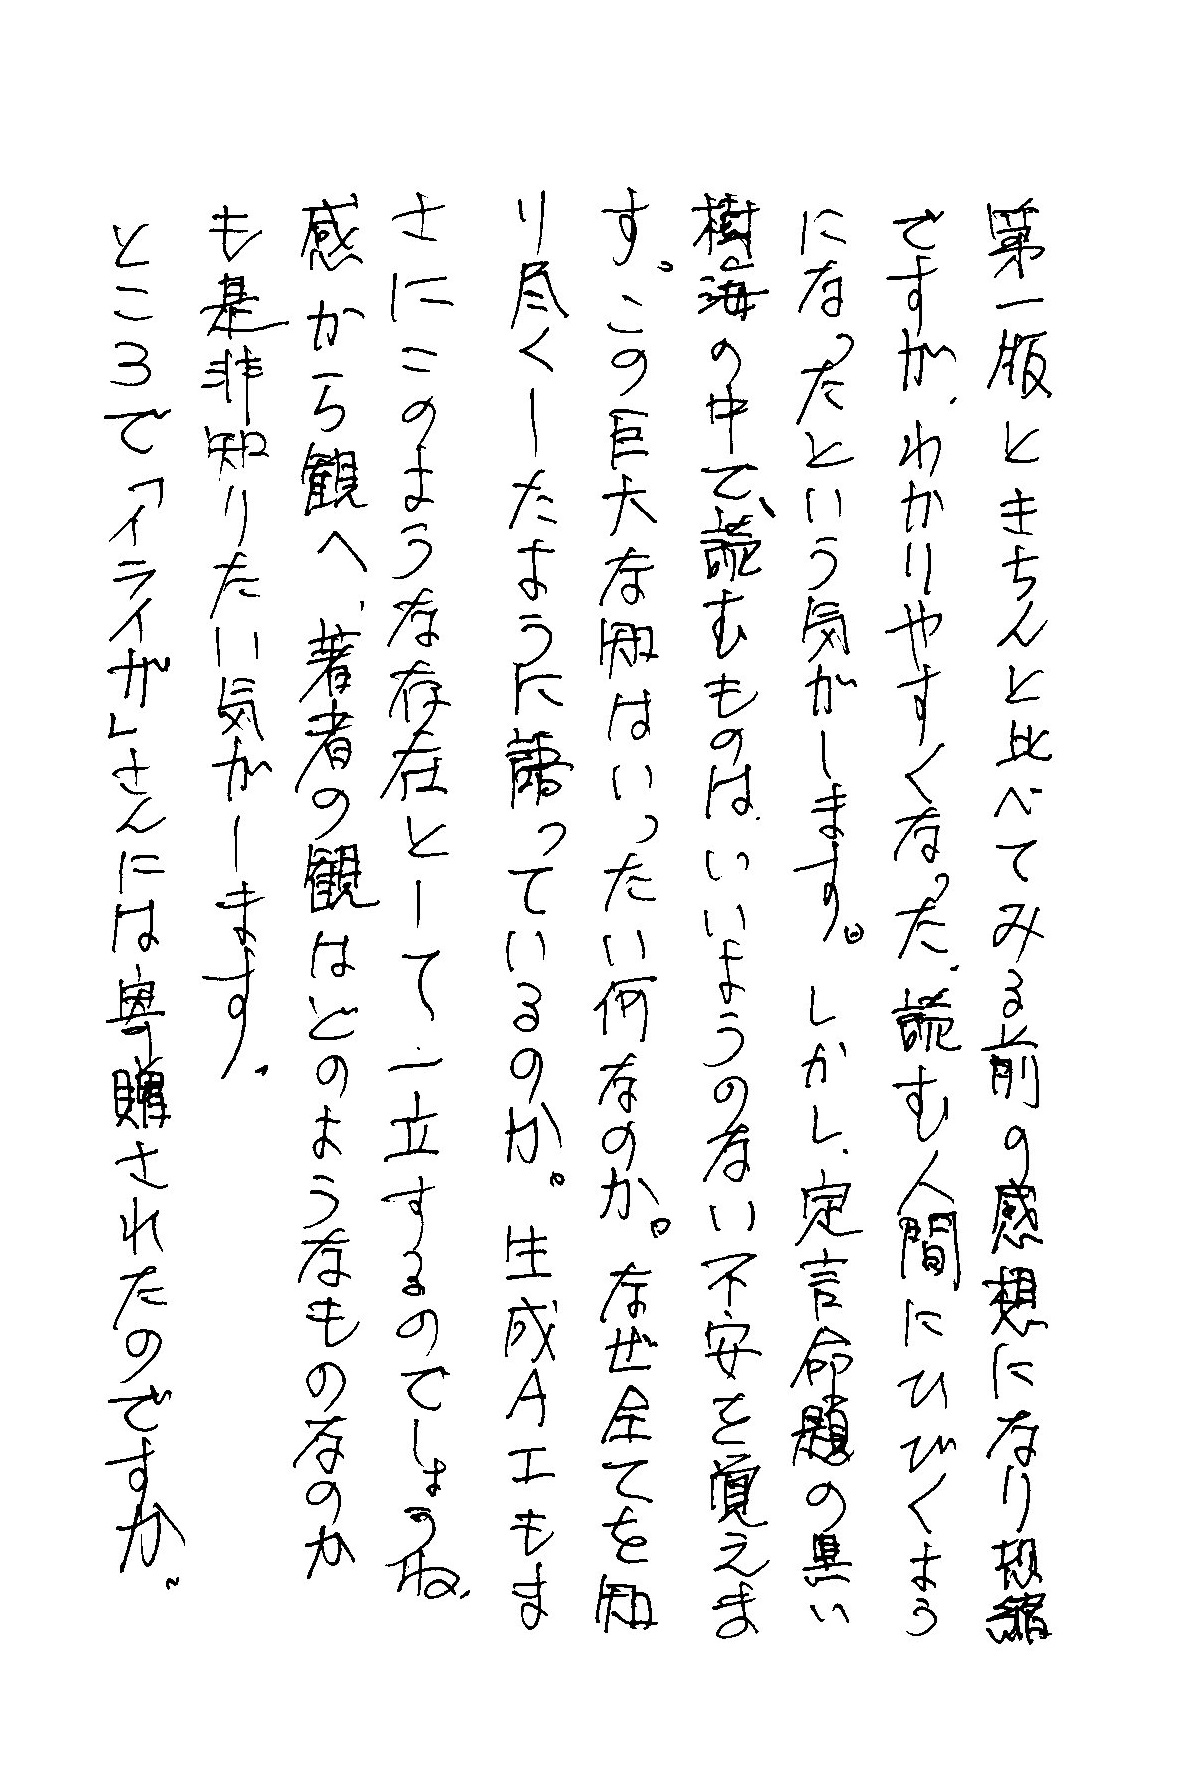 第一版ときちんと比べてみる前の感想になり恐縮
ですが、わかりやすくなった、読む人間にひびくよう
になったという気がします。しかし、定言命題の黒い
樹海の中で、読むものは、いいようのない不安を覚えま
す。この巨大な知はいったい何なのか。なぜ全てを知
り尽くしたように語っているのか。生成AIもま
さにこのような存在として、立するのでしょうね、
感から観へ、著者の観はどのようなものなのか
も是非知りたい気がします。
ところで「イライガ」さんには寄贈されたのですか。